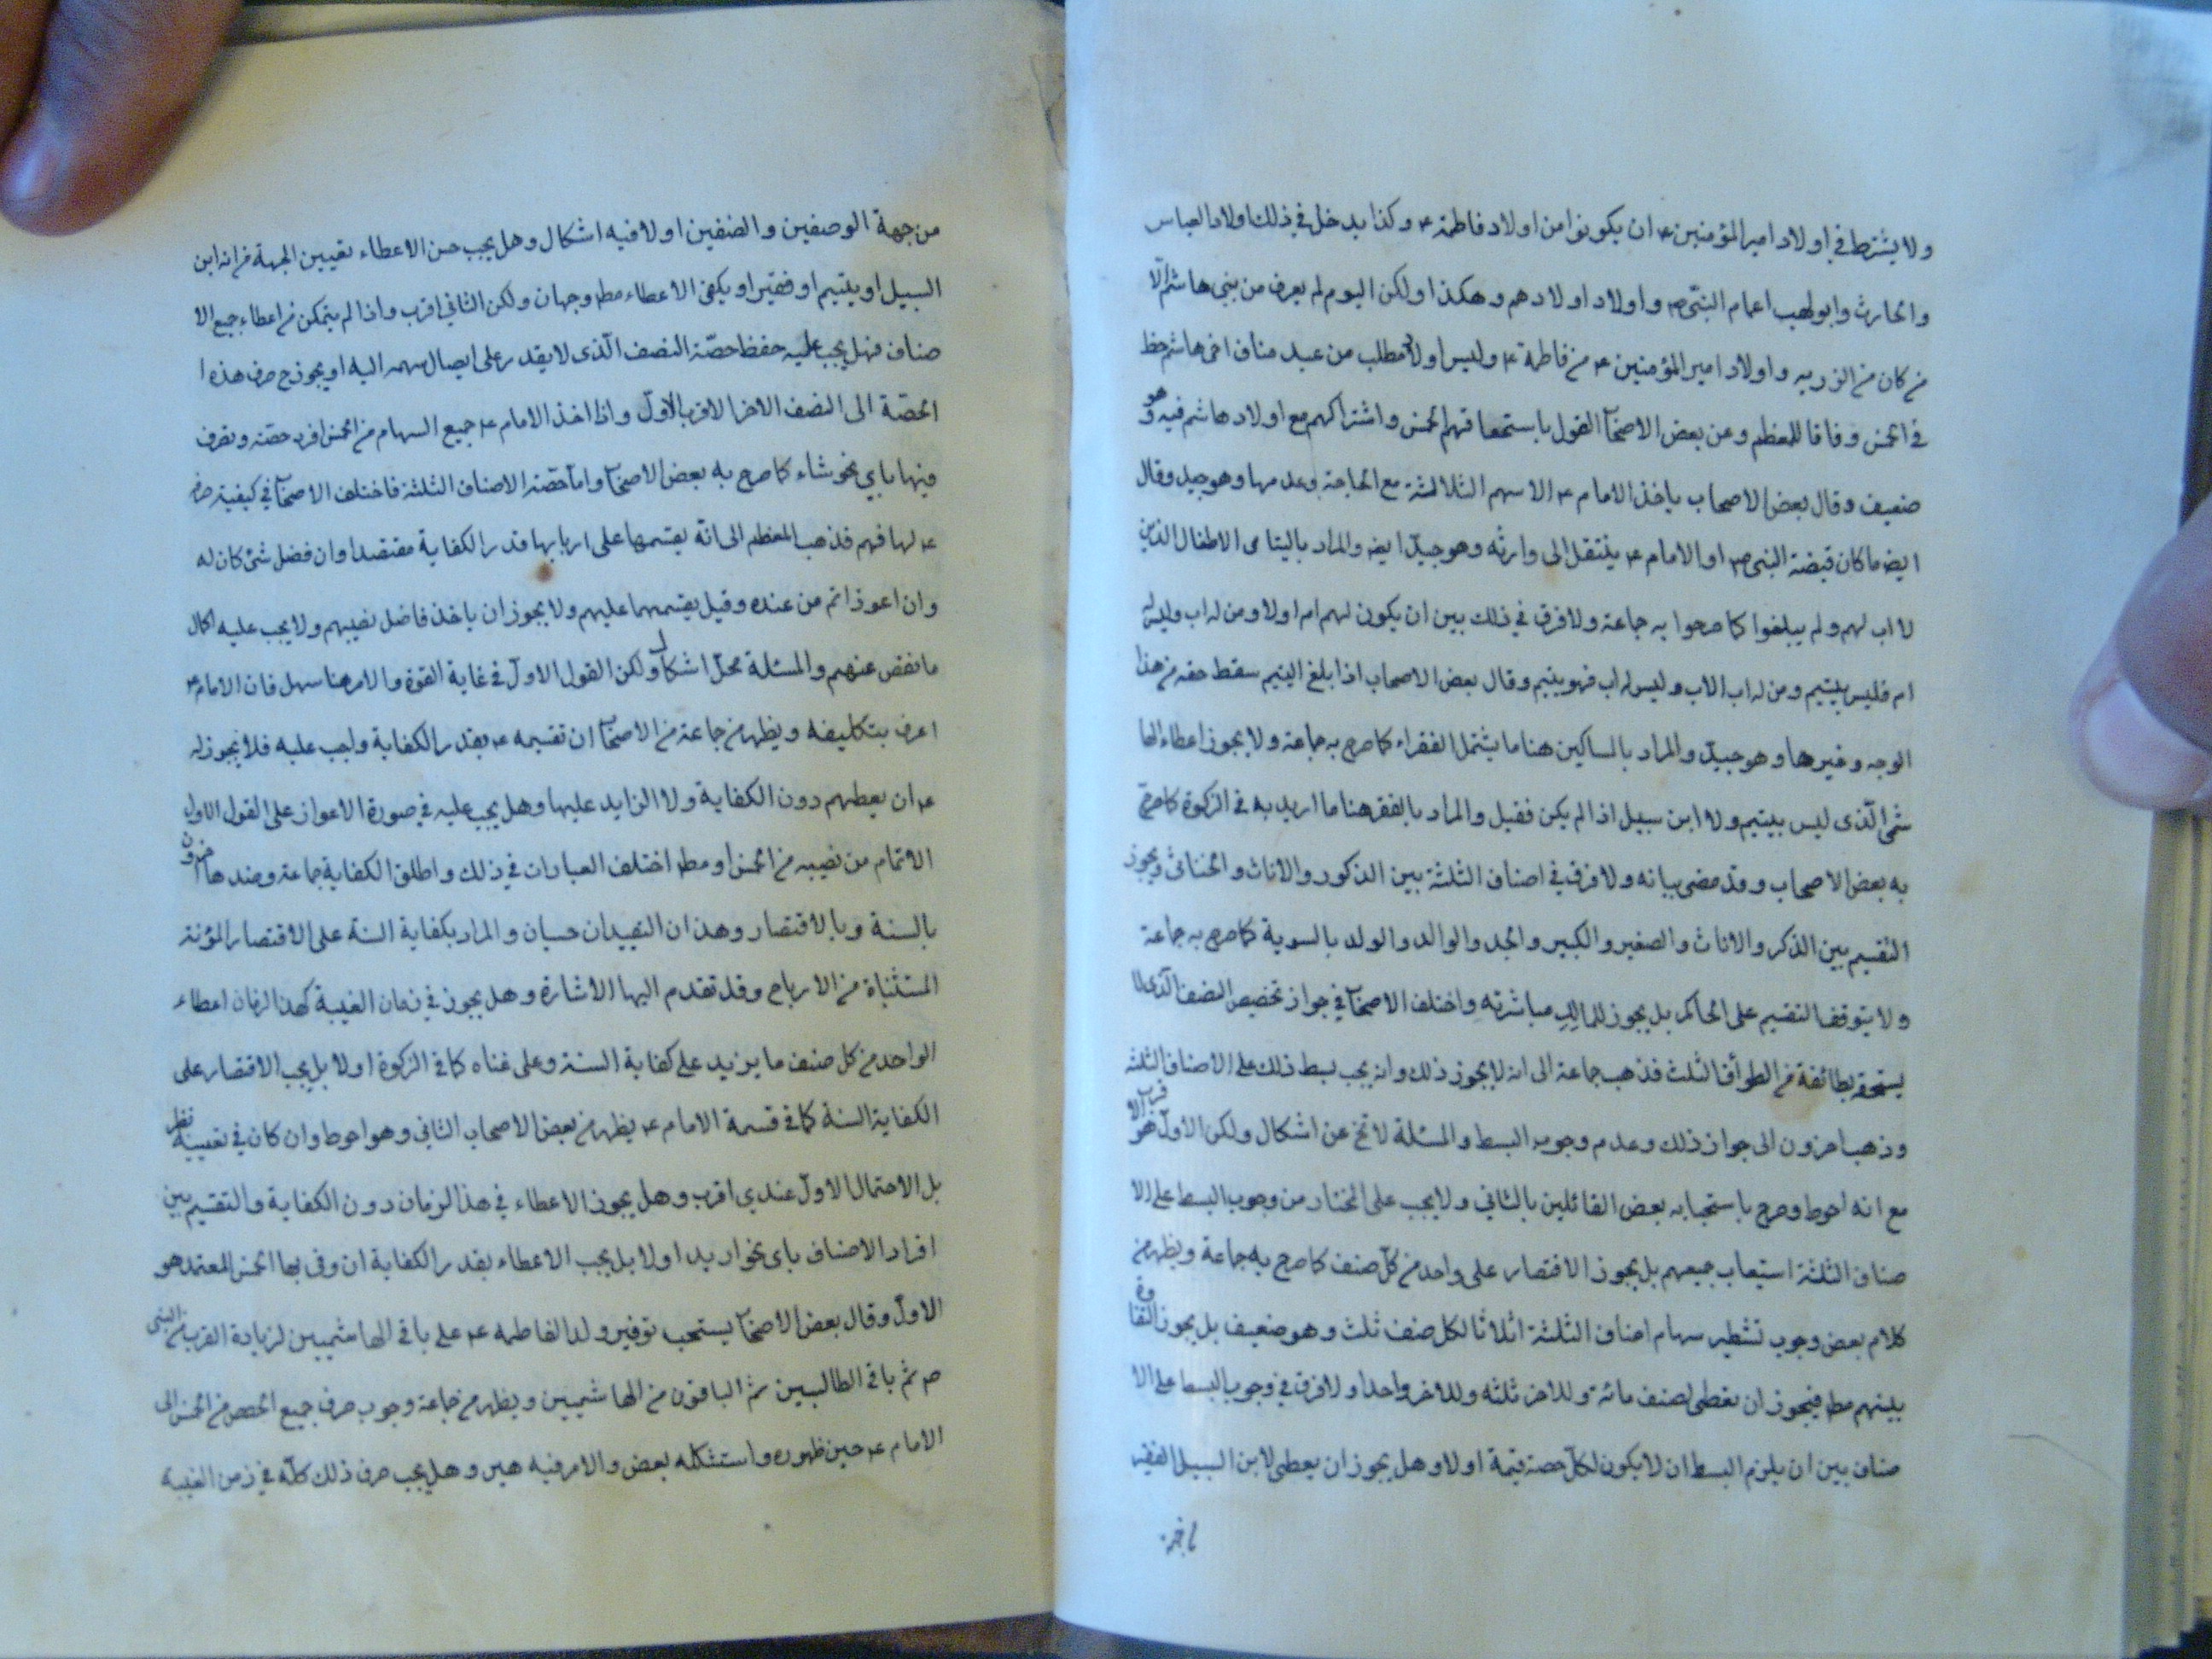 ولا يشترط في اولاد امير المؤمنين ع ان يكونوا من اولاد فاطمة ع وكذا يدخل في ذلك اولاد العباس
والحارث وابو لهب اعمام النبي ص واولاد اولادهم وهكذا ولكن اليوم لم يعرف من بني هاشم الا
من كان من الذرية واولاد امير المؤمنين ع من فاطمة ع وليس اولاد مطلب من عبد مناف اخى هاشم حظ
في الخمس وفاقا للمعظم وعن بعض الاصحاب القول باستحقاقهم الخمس واشتراكهم مع اولاد هاشم فيه وهو
ضعيف وقال بعض الاصحاب ياخذ الامام ع الاسهم الثلاثة مع الحاجة وعدمها وهو جيد وقال
ايض ما كان قبضه النبي ص او الامام ع ينتقل الى وارثه وهو جيد ايض والمراد باليتامى الاطفال الذين
لا اب لهم ولم يبلغوا كما صرحوا به جماعة ولا فرق في ذلك بين ان يكون لهم ام اولا ومن له اب وليس له
ام فليس بيتيم ومن له اب الاب وليس له اب فهو يتيم وقال بعض الاصحاب اذا بلغ اليتيم سقط حقه من هذا
الوجه وغيرها وهو جيد والمراد بالمساكين هنا ما يشتمل الفقراء كما صرح به جماعة ولا يجوز اعطاء الها
شمى الذى ليس بيتيم ولا ابن سبيل اذا لم يكن فقيل والمراد بالفقر هنا ما اريد به في الزكوة كما صرح
به بعض الاصحاب وقد مضى بيانه ولا فرق في اصناف الثلثة بين الذكور والاناث والخناثى ويجوز
التقسيم بين الذكر والاناث والصغير والكبير والجد والوالد والولد بالسوية كما صرح به جماعة
ولا يتوقف التقسيم على الحاكم بل يجوز للمالك مباشرته واختلف الاصحاب في جواز تخصيص النصف الذى
يستحقه بطائفة من الطوائف الثلث فذهب جماعة الى انه لا يجوز ذلك وانه يجب بسط ذلك على الاصناف الثلثة
وذهب اخرون الى جواز ذلك وعدم وجوب البسط والمسئلة لا تخ عن اشكال ولكن الاول هو الاقرب
مع انه احوط وصرح باستحبابه بعض القائلين بالثاني ولا يجب على المختار من وجوب البسط على الا
صناف الثلثة استيعاب جميعهم بل يجوز الاقتصار على واحد من كل صنف كما صرح به جماعة ويظهر من
كلام بعض وجوب تشطير سهام اصناف الثلثة اثلاثا لكل صنف ثلث وهو ضعيف بل يجوز التفاوة
بينهم مط فيجوز ان يعطى لصنف مائة وللاخر ثلثه وللاخر واحدا ولا فرق في وجوب البسط على الا
صناف بين ان يلزم البسط ان لا يكون لكل حصة قيمة اولا وهل يجوز ان يعطى لابن السبيل الفقير
من جهة الوصفين والصنفين اولا فيه اشكال وهل يجب حين الاعطاء تعيين الجهة من انه ابن
السبيل او يتيم او فقير او يكفى الاعطاء مط وجهان ولكن الثاني اقرب واذا لم يتمكن من اعطاء جميع الا
صناف فهل يجب عليه حفظ حصة النصف الذى لا يقدر على ايصال سهمه اليه او يجوز ح صرف هذه ا
الحصة الى النصف الاخر الاقرب الاول واذا اخذ الامام ع جميع السهام من الخمس افرد حصته وتصرف
فيها باي نحو شاء كما صرح به بعض الاصحاب واما حصة الاصناف الثلثة فاختلف الاصحاب في كيفية صرفه
ع لها فيهم فذهب المعظم الى انه يقسمها على اربابها قدر الكفاية مقتصدا وان فضل شئ كان له
وان اعوز اتم من عنده وقيل يقسمها عليهم ولا يجوز ان ياخذ فاضل نصيبهم ولا يجب عليه اكمال
ما نقص عنهم والمسئلة محل اشكال ولكن القول الاول في غاية القوة والامر هنا سهل فان الامام ع
اعرف بتكليفه ويظهر من جماعة من الاصحاب ان تقسيمه ع بقدر الكفاية واجب عليه فلا يجوز له
ع ان يعطيهم دون الكفاية ولا الزايد عليها وهل يجب عليه في صورة الاعواز على القول الاول
الاتمام من نصيبه من الخمس او مط اختلف العبارات في ذلك واطلق الكفاية جماعة وقيدها اخرون
بالسنة وبالاقتصار وهذان التقييدان حسنان والمراد بكفاية السنة على الاقتصار المؤنة
المستثناة من الارباح وقد تقدم اليها الاشارة وهل يجوز في زمان الغيبة كهذا الزمان اعطاء
الواحد من كل صنف ما يزيد على كفاية السنة وعلى غناه كما في الزكوة اولا بل يجب الاقتصار على
الكفاية السنة كما في قسمة الامام ع يظهر من بعض الاصحاب الثاني وهو احوط وان كان في تعيينه نظر
بل الاحتمال الاول عندي اقرب وهل يجوز الاعطاء في هذا الزمان دون الكفاية والتقسيم بين
افراد الاصناف باى نحو اريد اولا بل يجب الاعطاء بقدر الكفاية ان وفى بها الخمس المعتمد هو
الاول وقال بعض الاصحاب يستحب توفير ولد الفاطمه ع على باقى الهاشميين لزيادة القرب من النبي
ص ثم باقى الطالبيين ثم الباقون من الهاشميين ويظهر من جماعة وجوب صرف جميع الحصص من الخمس الى
الامام ع حين ظهوره واستشكله بعض والامر فيه هين وهل يجب صرف ذلك كله في زمن الغيبة